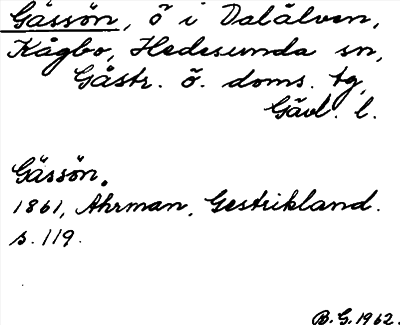 Gässön, ö i Dalälven,
Kågbo, Hedesunda sn,
Gästr. ö. doms. tg,
Gävl. l.
Gässön.
1861, Ahrman, Gestrikland.
s. 119.
B.G. 1962.